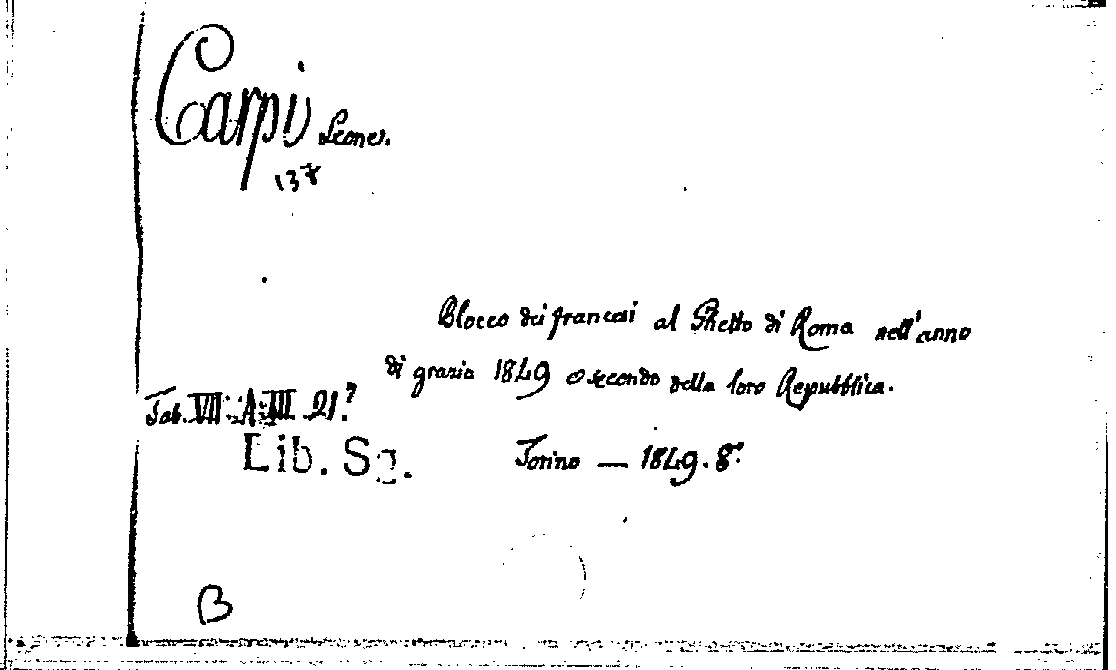 Carpi Leone.
137
Blocco dei francesi al Ghetto di Roma nell'anno
di grazia 1849 e secondo della loro Repubblica.
Tab. VII. A. III. 21.
Lib. Sg.
Torino — 1849. 8.
B